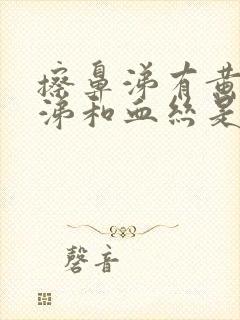 擦鼻涕有黄
涕和血丝是
磬音